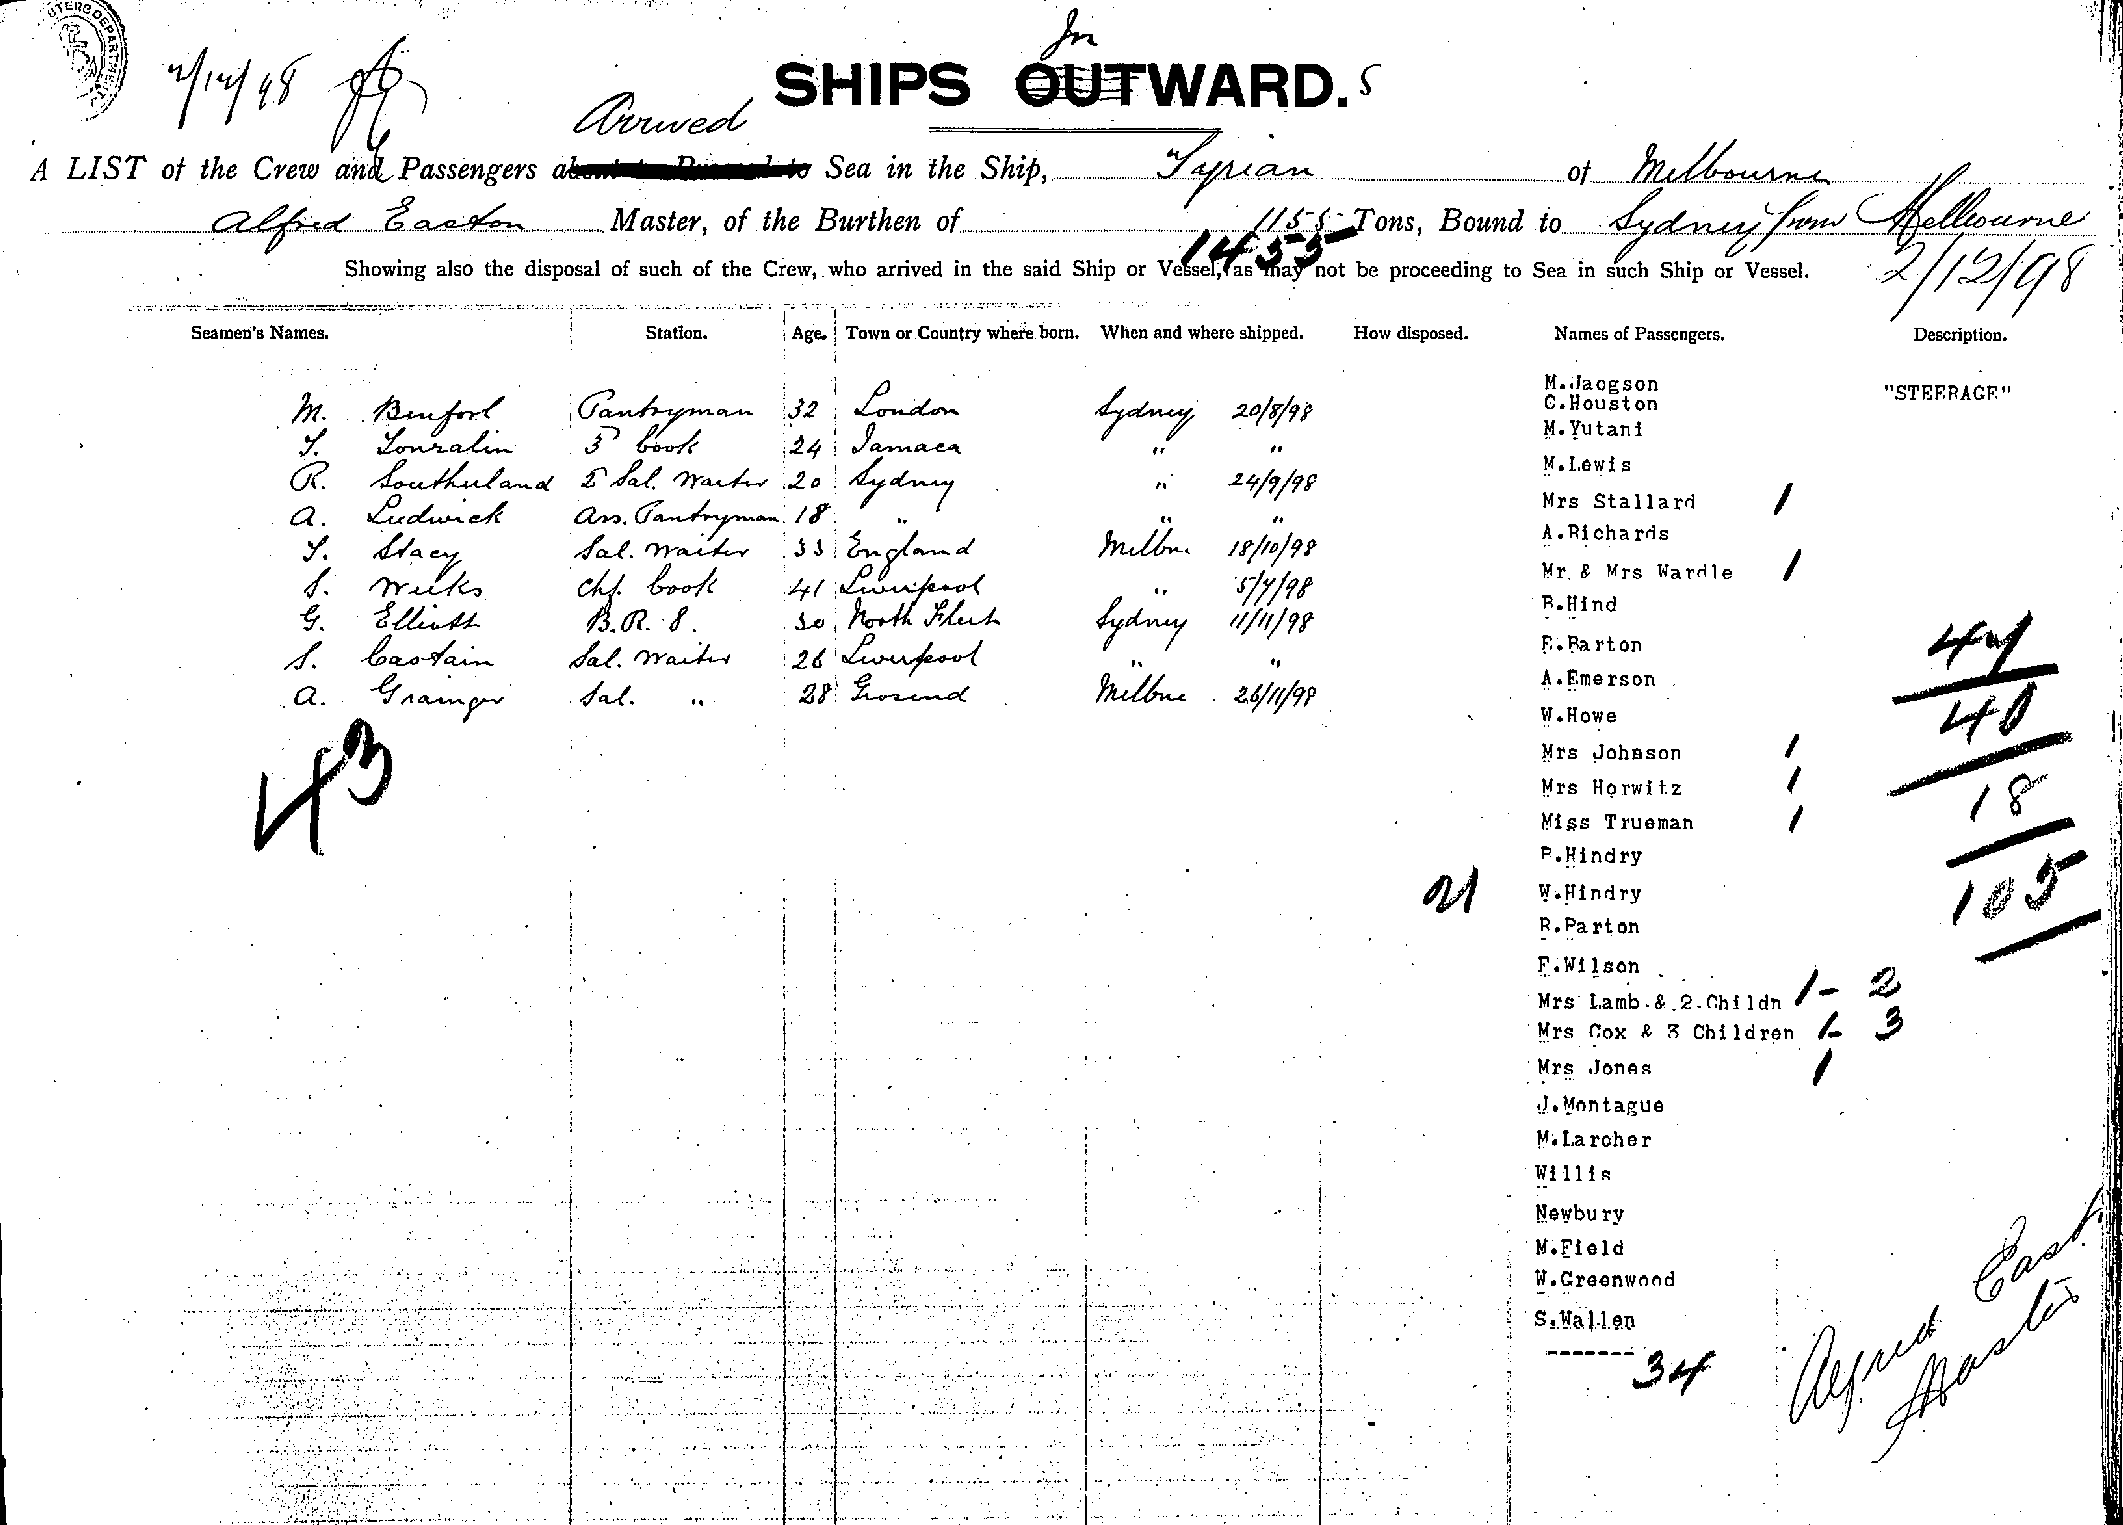 2/12/98
In
SHIPS OUTWARD. S
Arrived
A LIST of the Crew and Passengers about to Proceed to Sea in the Ship, Tyrian of Melbourne
Alfred Easton Master, of the Burthen of 1155 Tons, Bound to Sydney from Melbourne
1455
2/12/98
Showing also the disposal of such of the Crew, who arrived in the said Ship or Vessel, as may not be proceeding to Sea in such Ship or Vessel.
Seamen's Names. Station. Age. Town or Country where born. When and where shipped. How disposed. Names of Passengers. Description.
M. Pantryman 32 London Sydney 20/8/98
24 Jamaca " "
R. Southerland 2 Sal. Waiter 20 Sydney " 24/9/98
A. Ludwick Ass. Pantryman 18 " " "
Stacy Sal. Waiter 33 England Melbne 18/10/98
S. Weeks Chf. Cook 41 Liverpool " 5/7/98
G. Elliott B.R.S. 30 North Fleet Sydney 11/11/98
S. Castain Sal. Waiter 26 Liverpool " "
A. Grainger Sal. " 28 Melbne 26/11/98
43
M.Jaogson "STEERAGE"
C.Houston
M.Yutani
M.Lewis
Mrs Stallard 1
A.Richards
Mr. & Mrs Wardle 1
B.Hind
E.Barton
A.Emerson
W.Howe
Mrs Johnson 1
Mrs Horwitz 1
Miss Trueman 1
R.Hindry
W.Hindry
R.Parton
F.Wilson
Mrs Lamb & 2 Childn 1 - 2
Mrs Cox & 3 Children 1 - 3
Mrs Jones 1
J.Montague
M.Larcher
Willis
Newbury
M.Field
W.Greenwood
S.Wallen
34
21
47
40
18
105
Alfred East
Master